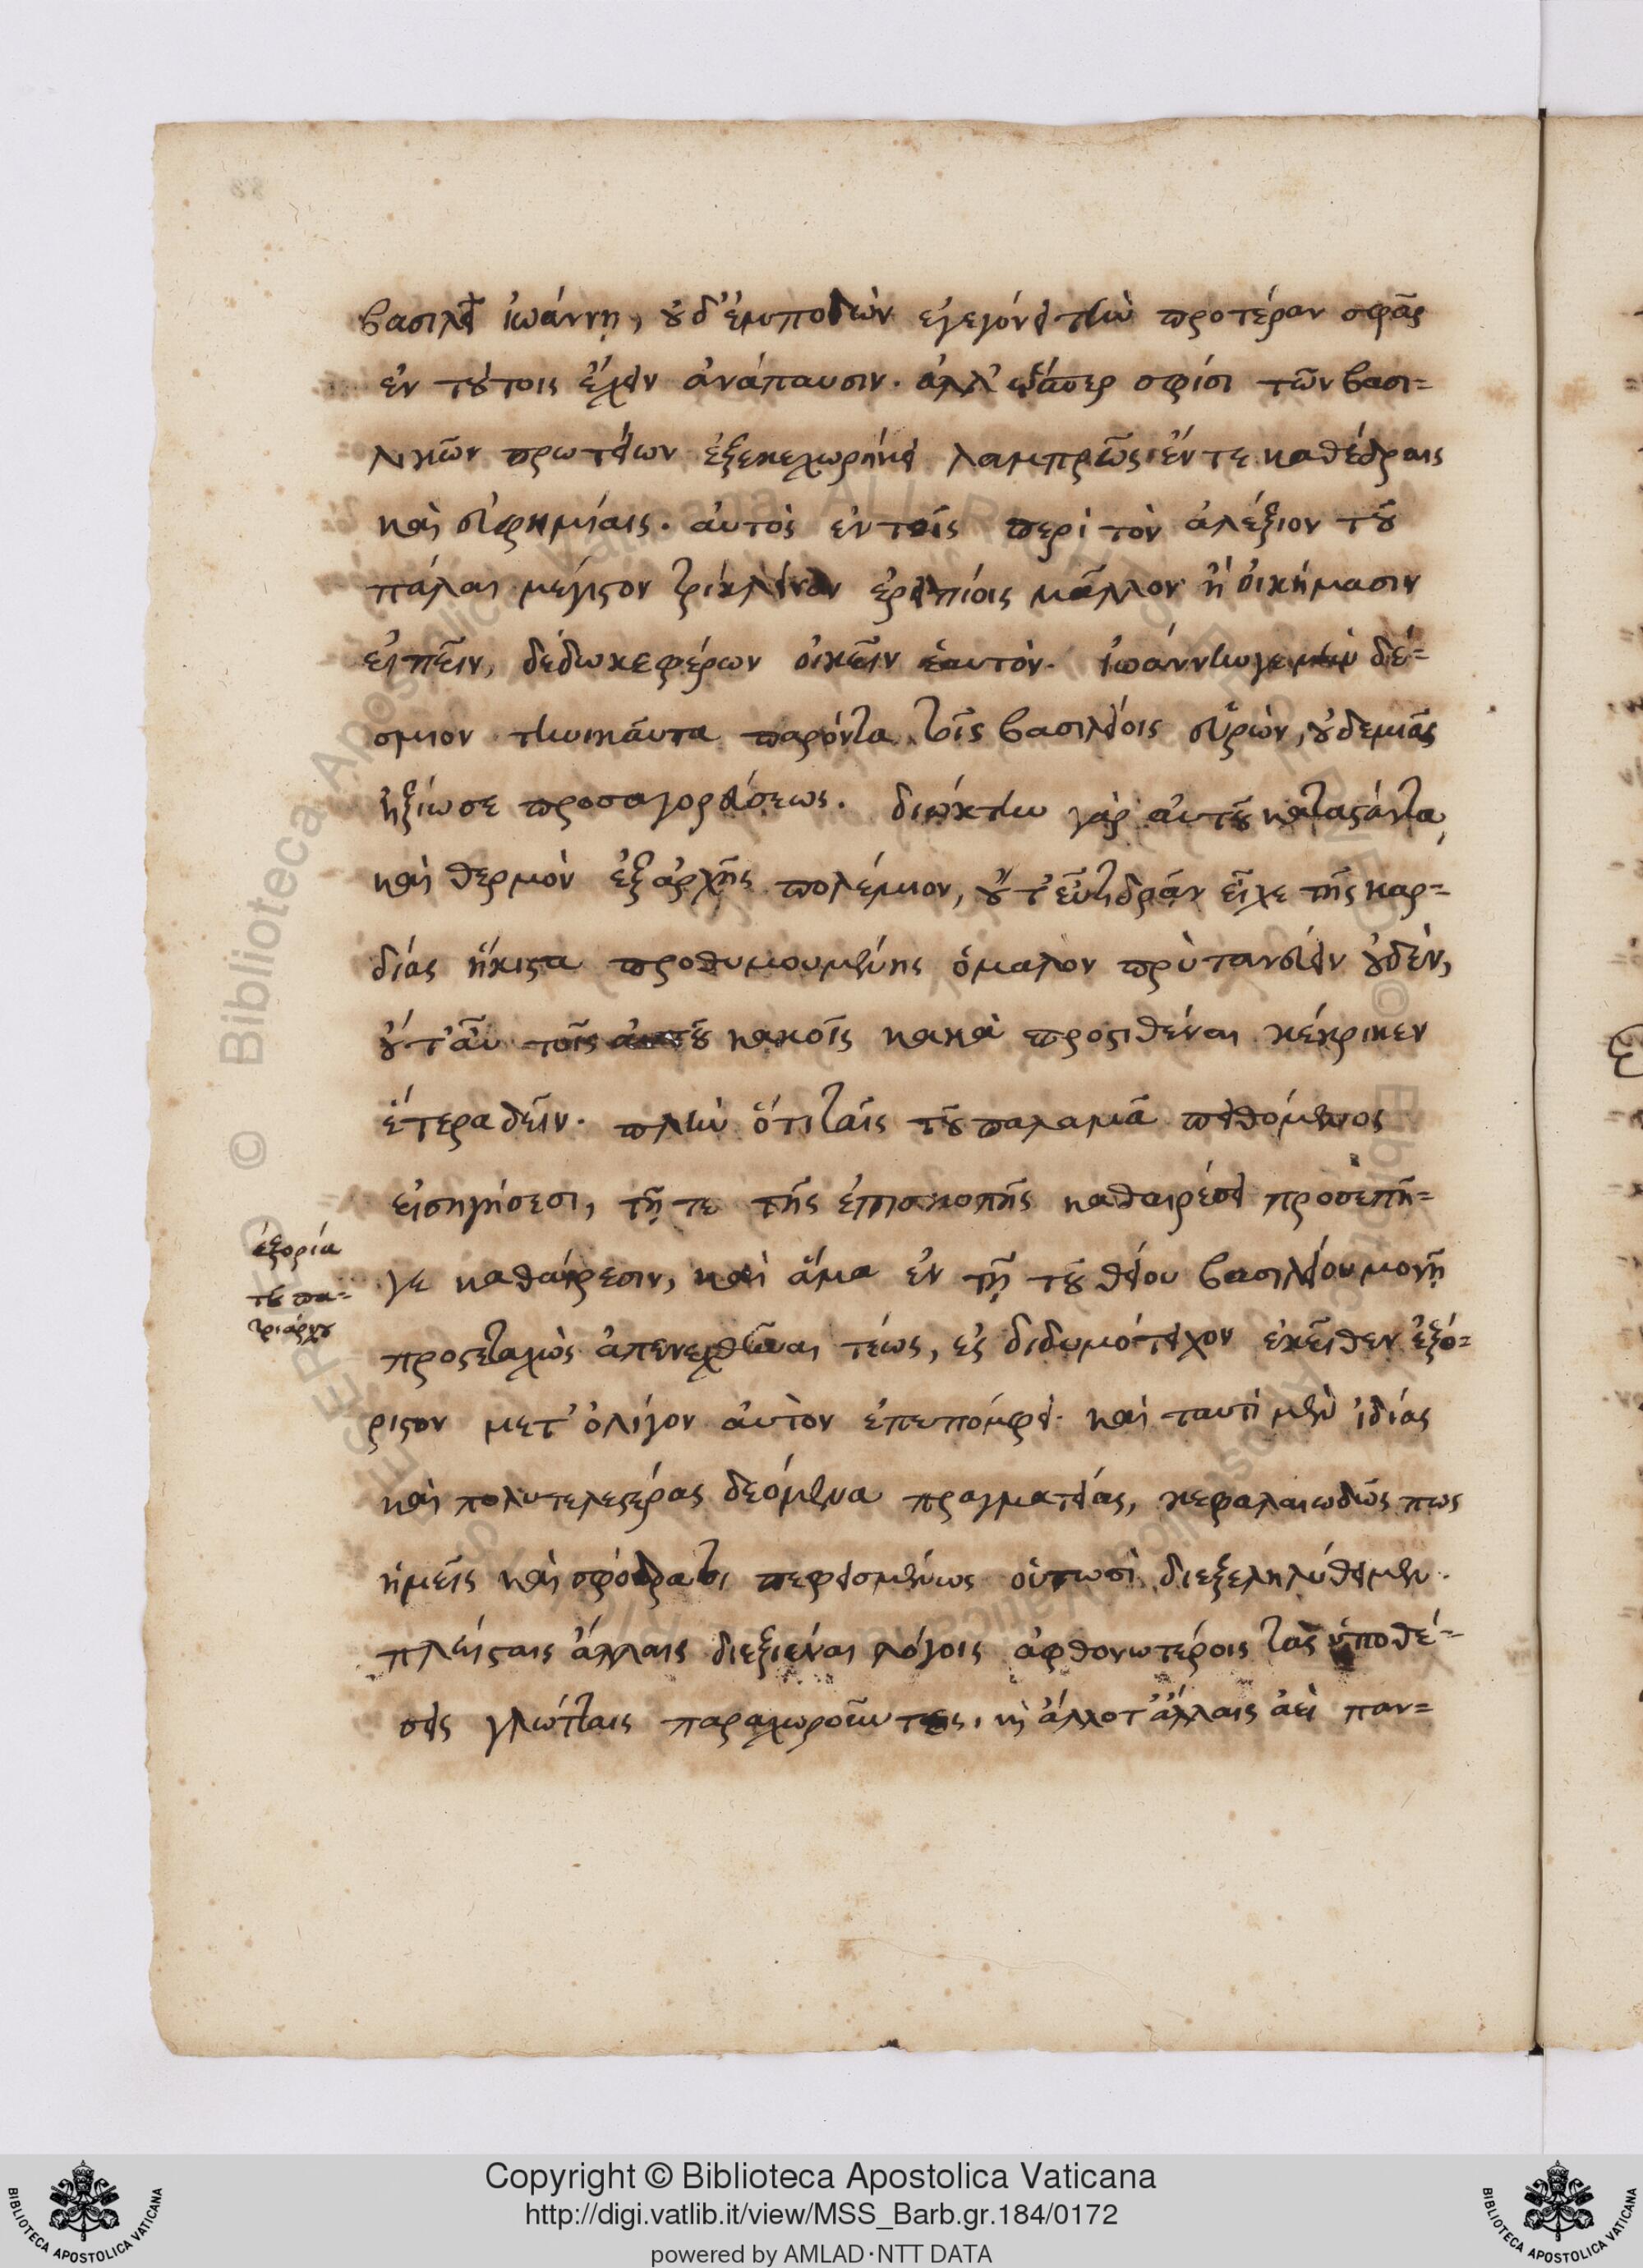 βασιλεῖ ἰωάννῃ, ȣδ᾽ ἐμποδὼν ἐγεγόνει τὴν προτέραν σφᾶς
ἐν τȣ́τοις ἔχειν ἀνάπαυσιν. ἀλλ᾽ σφίσι τῶν βασι=
λικῶν πρωτείων ἐξεκεχωρήκει λαμπρῶς ἔν τε καθέδραις
καὶ εὐφημίαις. αὐτὸς ἐν τοῖς περὶ τὸν ἀλέξιον τȣ͂
πάλαι μέγιστον τρίκλινον ἐρειπίοις μᾶλλον ἢ οἰκήμασιν
εἰπεῖν, δέδωκε φέρων οἰκεῖν ἑαυτόν. ἰωάννην γε μὴν δέ=
σμιον τηνικαῦτα παρόντα τοῖς βασιλείοις εὑρὼν, ȣδεμιᾶς
ἠξίωσε προσαγορεύσεως. διώκτην γὰρ αὐτȣ͂ καταστάντα,
καὶ θερμὸν ἐξαρχῆς πολέμιον, ȣ́τ᾽ εὖ τι δρᾶν εἶχε τῆς καρ=
δίας ἥκιστα προθυμουμένης ὁμαλὸν πρυτανεύειν ȣδὲν,
ȣ́τ᾽ αὖ τοῖς αὐτȣ͂ κακοῖς κακὰ προστιθέναι κέκρικεν
ἕτερα δεῖν. πλὴν ὅτι ταῖς τȣ͂ παλαμᾶ πειθόμενος
εἰσηγήσεσι, τῇ τε τῆς ἐπισκοπῆς καθαιρέσει προσεπῆ=
γε καθαίρεσιν, καὶ ἅμα ἐν τῇ τȣ͂ θείου βασιλείου μονῇ
προστεταχὼς ἀπενεχθῆναι τέως, ἐς διδυμότειχον ἐκεῖθεν ἐξό=
ριστον μετ᾽ ὀλίγον αὐτὸν ἐπεπόμφει. καὶ ταυτὶ μὲν ἰδίας
καὶ πολυτελεστέρας δεόμενα πραγματείας, κεφαλαιωδῶς πως
ἡμεῖς καὶ σφόδρα τι πεφεισμένως οὑτωσὶ διεξεληλύθειμεν.
πλείσταις ἄλλαις διεξιέναι λόγοις ἀφθονωτέροις τὰς ὑποθέ=
σεις γλώτταις παραχωροῦντες, κὶ ἄλλοτ᾽ ἄλλαις ἀεὶ παν=
ἐξορία
τȣ͂ πα=
τριάρχȣ
© Biblioteca Apostolica Vaticana ALL RIGHTS RESERVED
Copyright © Biblioteca Apostolica Vaticana
http://digi.vatlib.it/view/MSS_Barb.gr.184/0172
powered by AMLAD·NTT DATA
BIBLIOTECA APOSTOLICA VATICANA
BIBLIOTECA APOSTOLICA VATICANA